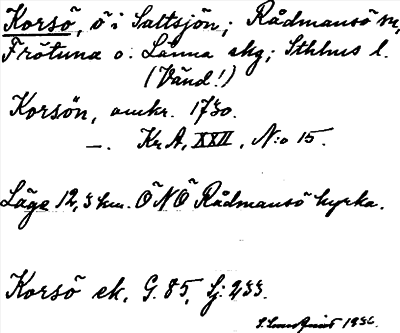 Korsö, ö i Saltsjön; Rådmansö sn,
Frötuna o. Länna skg; Sthlms l.
(Vänd!)
Korsön, omkr. 1730.
—. Kr. A, XXII, N:o 15.
Läge 12,3 km. ÖNÖ Rådmansö kyrka.
Korsö ek. G. 85, Lj: 233.
1936.